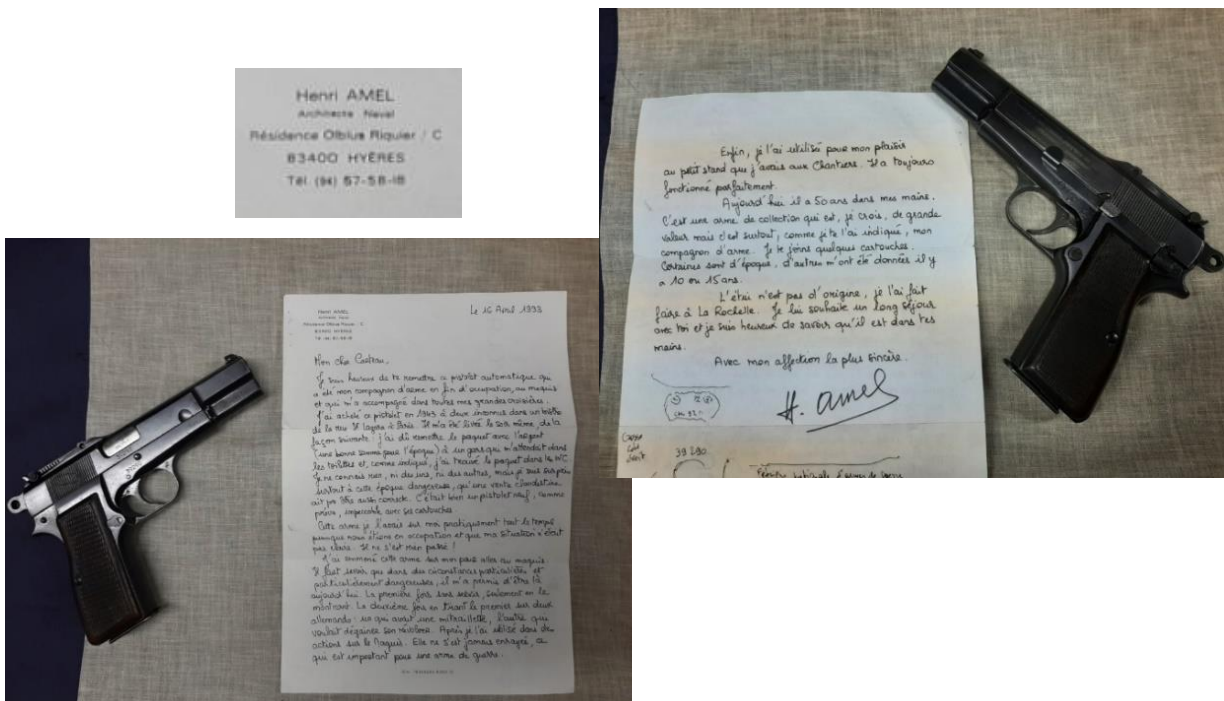 Henri AMEL
Architecte Naval
Résidence Olbius Riquier / C
83400 HYÈRES
Tél. (94) 57-58-18
Henri AMEL
Résidence Olbius Riquier / C
83400 HYÈRES
Le 16 Avril 1993
Mon cher
Je suis heureux de te remettre ce pistolet automatique qui
a été mon compagnon d'arme en fin d'occupation, au maquis
et qui m'a accompagné dans toutes mes grandes croisières.
J'ai acheté ce pistolet en 1943 à deux inconnus dans un bistro
de la rue à Paris. Il m'a été livré le soir même, de la
façon suivante : j'ai dû remettre le paquet avec l'argent
(une bonne somme pour l'époque) à un gars qui m'attendait dans
les toilettes et, comme indiqué, j'ai trouvé le paquet dans le WC.
Je ne connais rien, ni des uns, ni des autres, mais je suis surpris
surtout à cette époque dangereuse, qu'une vente clandestine
ait pu être aussi correcte. C'était bien un pistolet neuf, comme
prévu, impeccable avec ses cartouches.
Cette arme je l'avais sur moi pratiquement tout le temps
puisque nous étions en occupation et que ma situation n'était
pas claire. Il ne s'est rien passé !
J'ai emmené cette arme sur moi pour aller au maquis.
Il faut savoir que dans des circonstances particulières et
particulièrement dangereuses, il m'a permis d'être là
aujourd'hui. La première fois sans, seulement en le
montrant. La deuxième fois en tirant le premier sur deux
allemands : un qui avait une mitraillette, l'autre qui
voulait dégainer son révolver. Après je l'ai utilisé dans des
actions sur le Maquis. Elle ne s'est jamais enrayée, ce
qui est important pour une arme de guerre.
Enfin, je l'ai utilisé pour mon plaisir
au petit stand que j'avais aux Chantiers. Il a toujours
fonctionné parfaitement.
Aujourd'hui il a 50 ans dans mes mains.
C'est une arme de collection qui est, je crois, de grande
valeur mais c'est surtout, comme je te l'ai indiqué, mon
compagnon d'arme. Je te joins quelques cartouches.
Certaines sont d'époque, d'autres m'ont été données il y
a 10 ou 15 ans.
L'étui n'est pas d'origine, je l'ai fait
faire à La Rochelle. Je lui souhaite un long séjour
avec toi et je suis heureux de savoir qu'il est dans tes
mains.
Avec mon affection la plus sincère.
H. Amel
39290